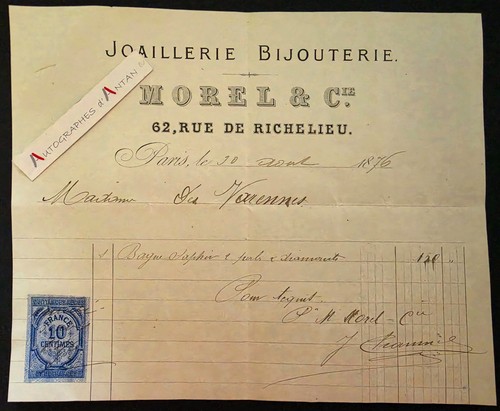 JOAILLERIE BIJOUTERIE.
AUTOGRAPHES d'ANTAN ©
MOREL & CIE
62, RUE DE RICHELIEU.
Paris, le 20 août 1876
Madame des Varennes
1 Bague Saphir 2 perles & diamants 120 "
Pour acquit
Pr H Morel - Cie
FRANCE
10
CENTIMES